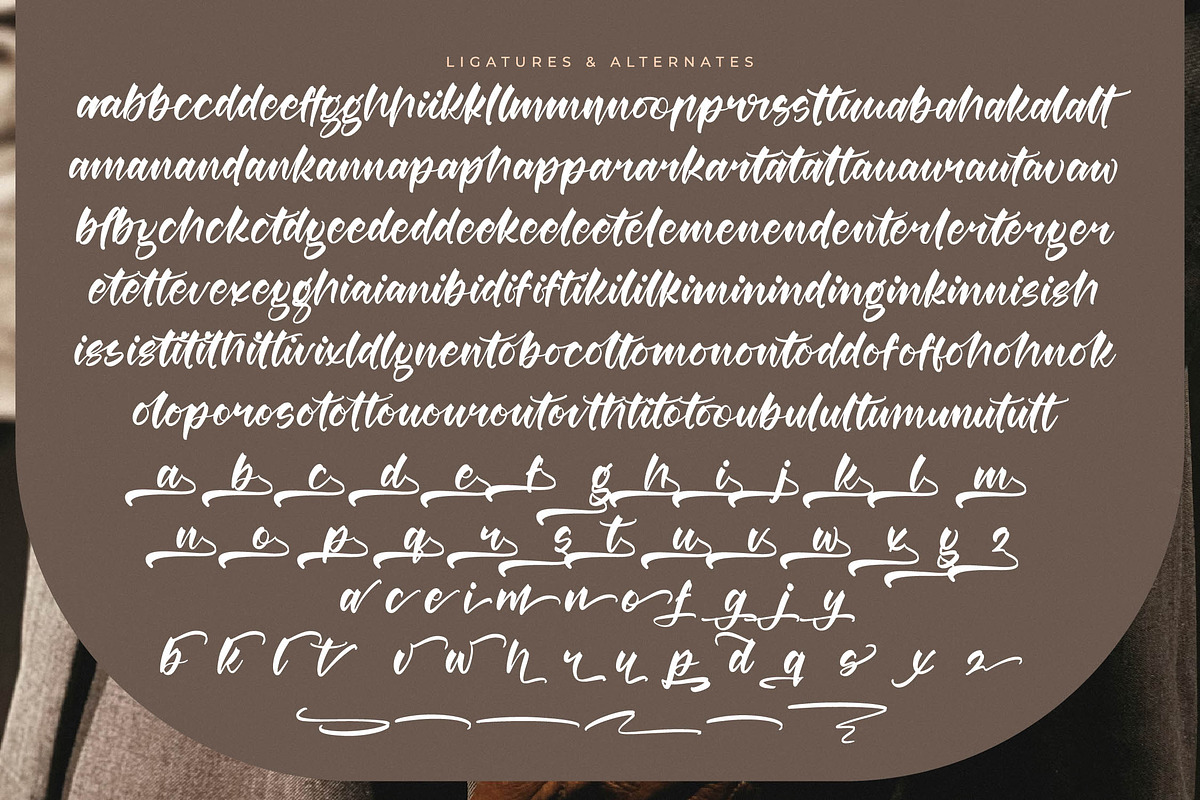 LIGATURES & ALTERNATES
aabbccddeeffgghhiikkllmmnnoopprrrssttuuabahakalalt
amanandankannapaphapparar​kartatattauaurautavaw
bfbychckctdgeededdeekeeleetelemenendenterlerterger
etettevexeygghiaianibidififtikililkiminindinginkinnisish
issistitithittivixldlgnentobocottomonontoddofoffohohnok
oloporosotottououroutovthtitotooubulultumunututt
a b c d e f g h i j k l m
n o p q r s t u v w x y z
a c e i m n o f g j y
b k l t v w h r u p d q s x z